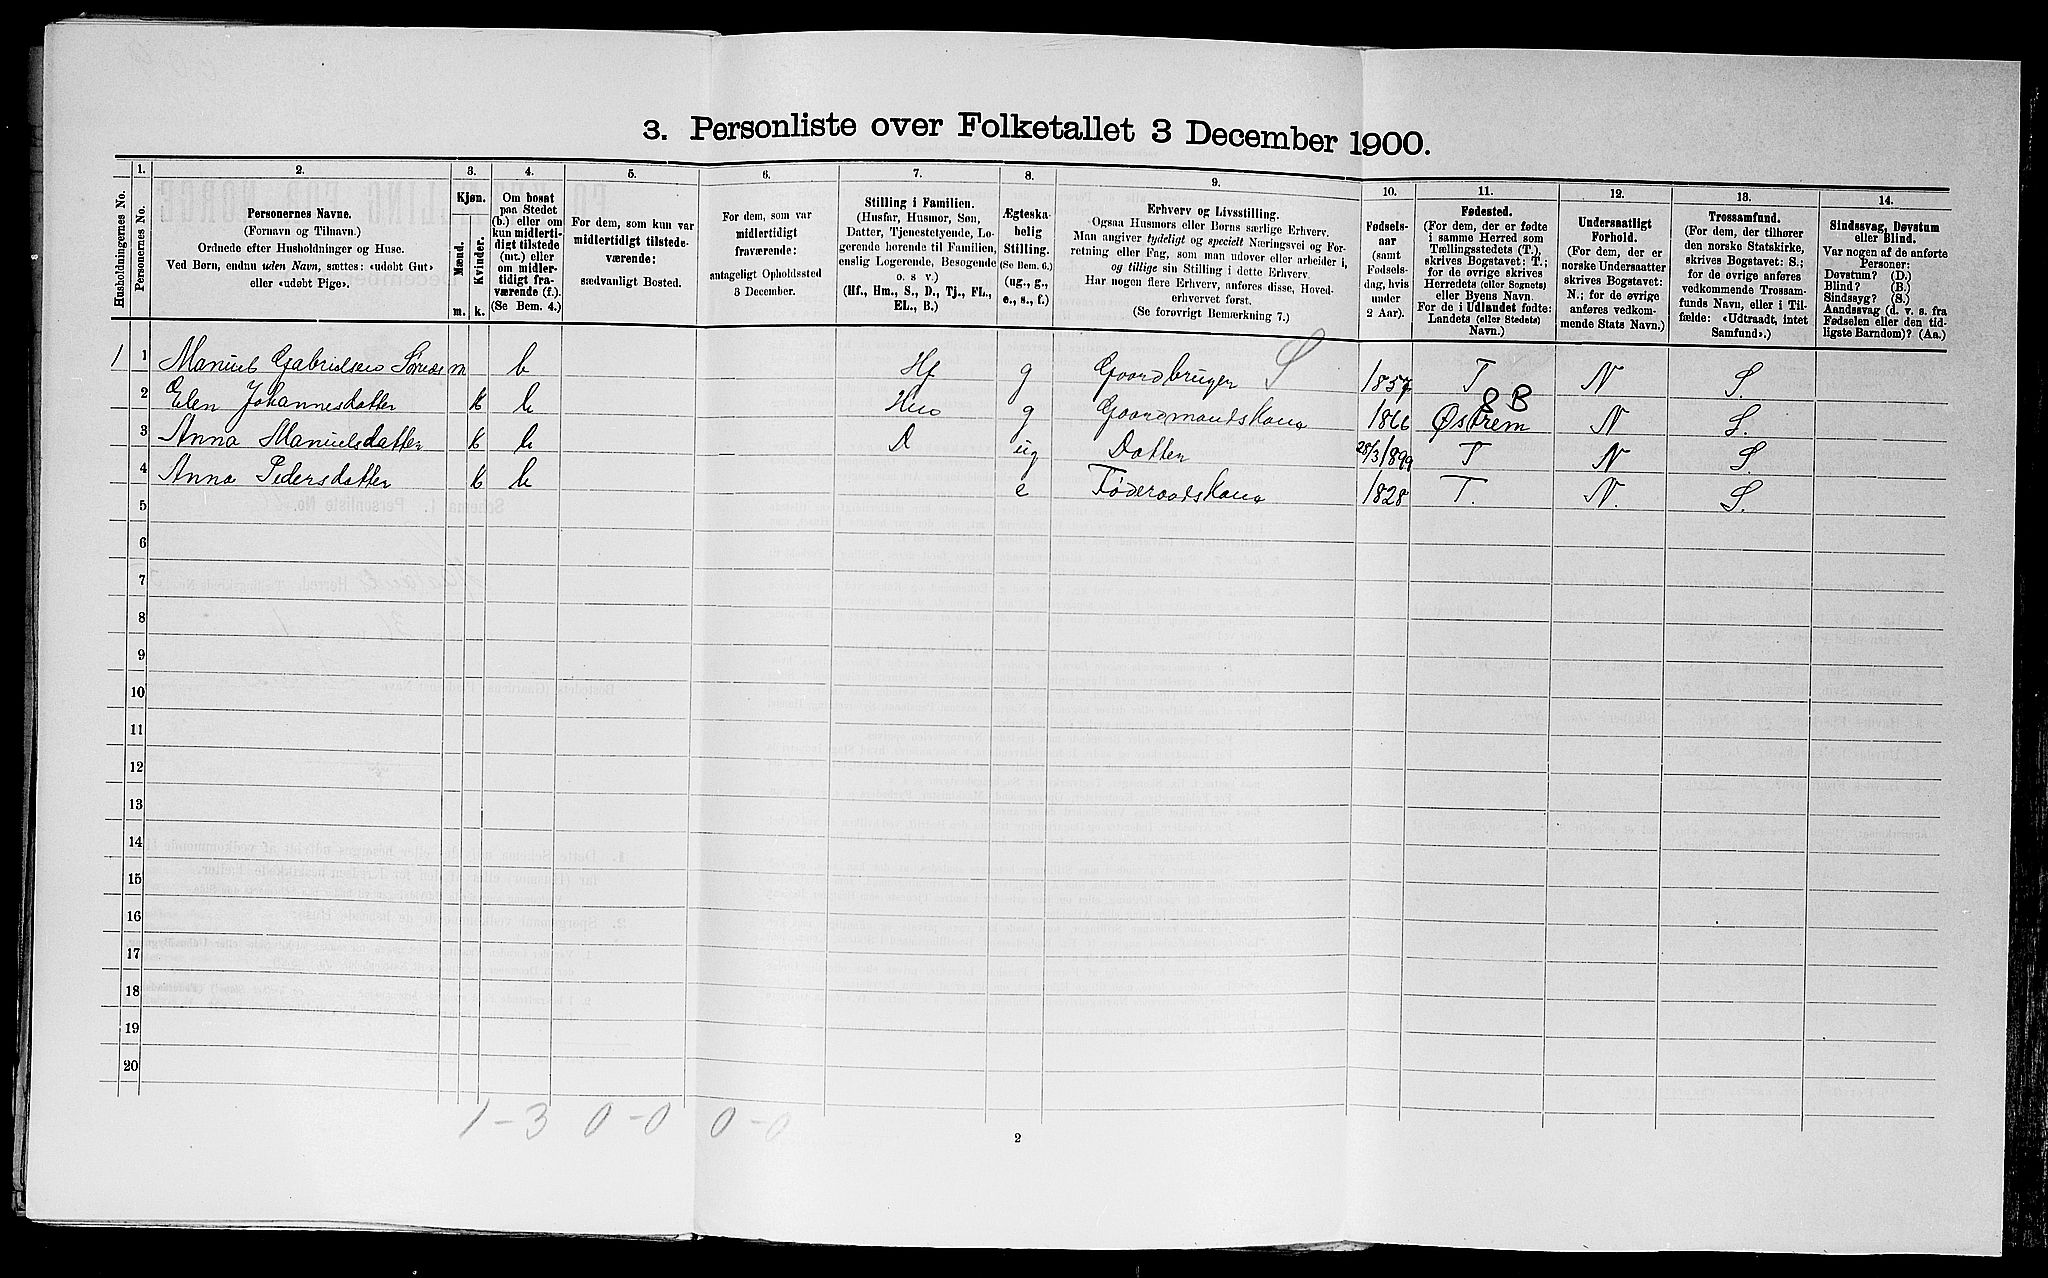 3. Personliste over Folketallet 3 December 1900.
1. 2. 3. 4. 5. 6. 7. 8. 9. 10. 11. 12. 13. 14.
Husholdningernes No.
Personernes No.
Personernes Navne.
(Fornavn og Tilnavn.)
Ordnede efter Husholdninger og Huse.
Ved Børn, endnu uden Navn, sættes: «udøbt Gut»
eller «udøbt Pige».
Kjøn.
Mænd.
Kvinder.
m. k.
Om bosat
paa Stedet
(b.) eller om
kun midlerti-
digt tilstede
(mt.) eller
om midler-
tidigt fra-
værende (f.).
(Se Bem. 4.)
For dem, som kun var
midlertidigt tilstede-
værende:
sædvanligt Bosted.
For dem, som var
midlertidigt
fraværende:
antageligt Opholdssted
3 December.
Stilling i Familien.
(Husfar, Husmor, Søn,
Datter, Tjenestetyende, Lo-
gerende hørende til Familien,
enslig Logerende, Besøgende
o. s v.)
(Hf., Hm., S., D., Tj., FL.,
EL., B.)
Ægteska-
belig
Stilling.
(Se Bem. 6.)
(ug., g.,
e., s., f.)
Erhverv og Livsstilling.
Ogsaa Husmors eller Børns særlige Erhverv.
Man angiver tydeligt og specielt Næringsvei og For-
retning eller Fag, som man udøver eller arbeider i,
og tillige sin Stilling i dette Erhverv.
Har nogen flere Erhverv, anføres disse, Hoved-
erhvervet først.
(Se forøvrigt Bemærkning 7.)
Fødsels-
aar
(samt
Fødsels-
dag, hvis
under
2 Aar).
Fødested.
(For dem, der er fødte
i samme Herred som
Tællingsstedets (T.),
skrives Bogstavet: T.;
for de øvrige skrives
Herredets (eller Sognets)
eller Byens Navn.
For de i Udlandet fødte:
Landets (eller Stedets)
Navn.)
Undersaatligt
Forhold.
(For dem, der er
norske Undersaatter
skrives Bogstavet:
N.; for de øvrige
anføres vedkom-
mende Stats Navn.)
Trossamfund.
(For dem, der tilhører
den norske Statskirke,
skrives Bogstavet: S.;
for de øvrige anføres
vedkommende Trossam-
funds Navn, eller i Til-
fælde: «Udtraadt, intet
Samfund».)
Sindssvag, Døvstum
eller Blind.
Var nogen af de anførte
Personer:
Døvstum? (D.)
Blind? (B.)
Sindssyg? (S.)
Aandssvag (d. v. s. fra
Fødselen eller den tid-
ligste Barndom)? (Aa.)
1 1 Manuel Gabrielsen m b Hf g Gaardbruger S 1857 T N S.
8 B
2 Elen Johannesdatter k b Hm g Gaardmandskone 1866 Østrem N S.
3 Anna Manuelsdatter k b D ug Datter 28/3 1899 T N S.
4 Anna Pedersdatter k b e Føderaadskone 1828 T. N. S.
5
6
7
8
9
10
11
12
13
14
15
16
17
18
19
20
1 - 3 0 - 0 0 - 0
2